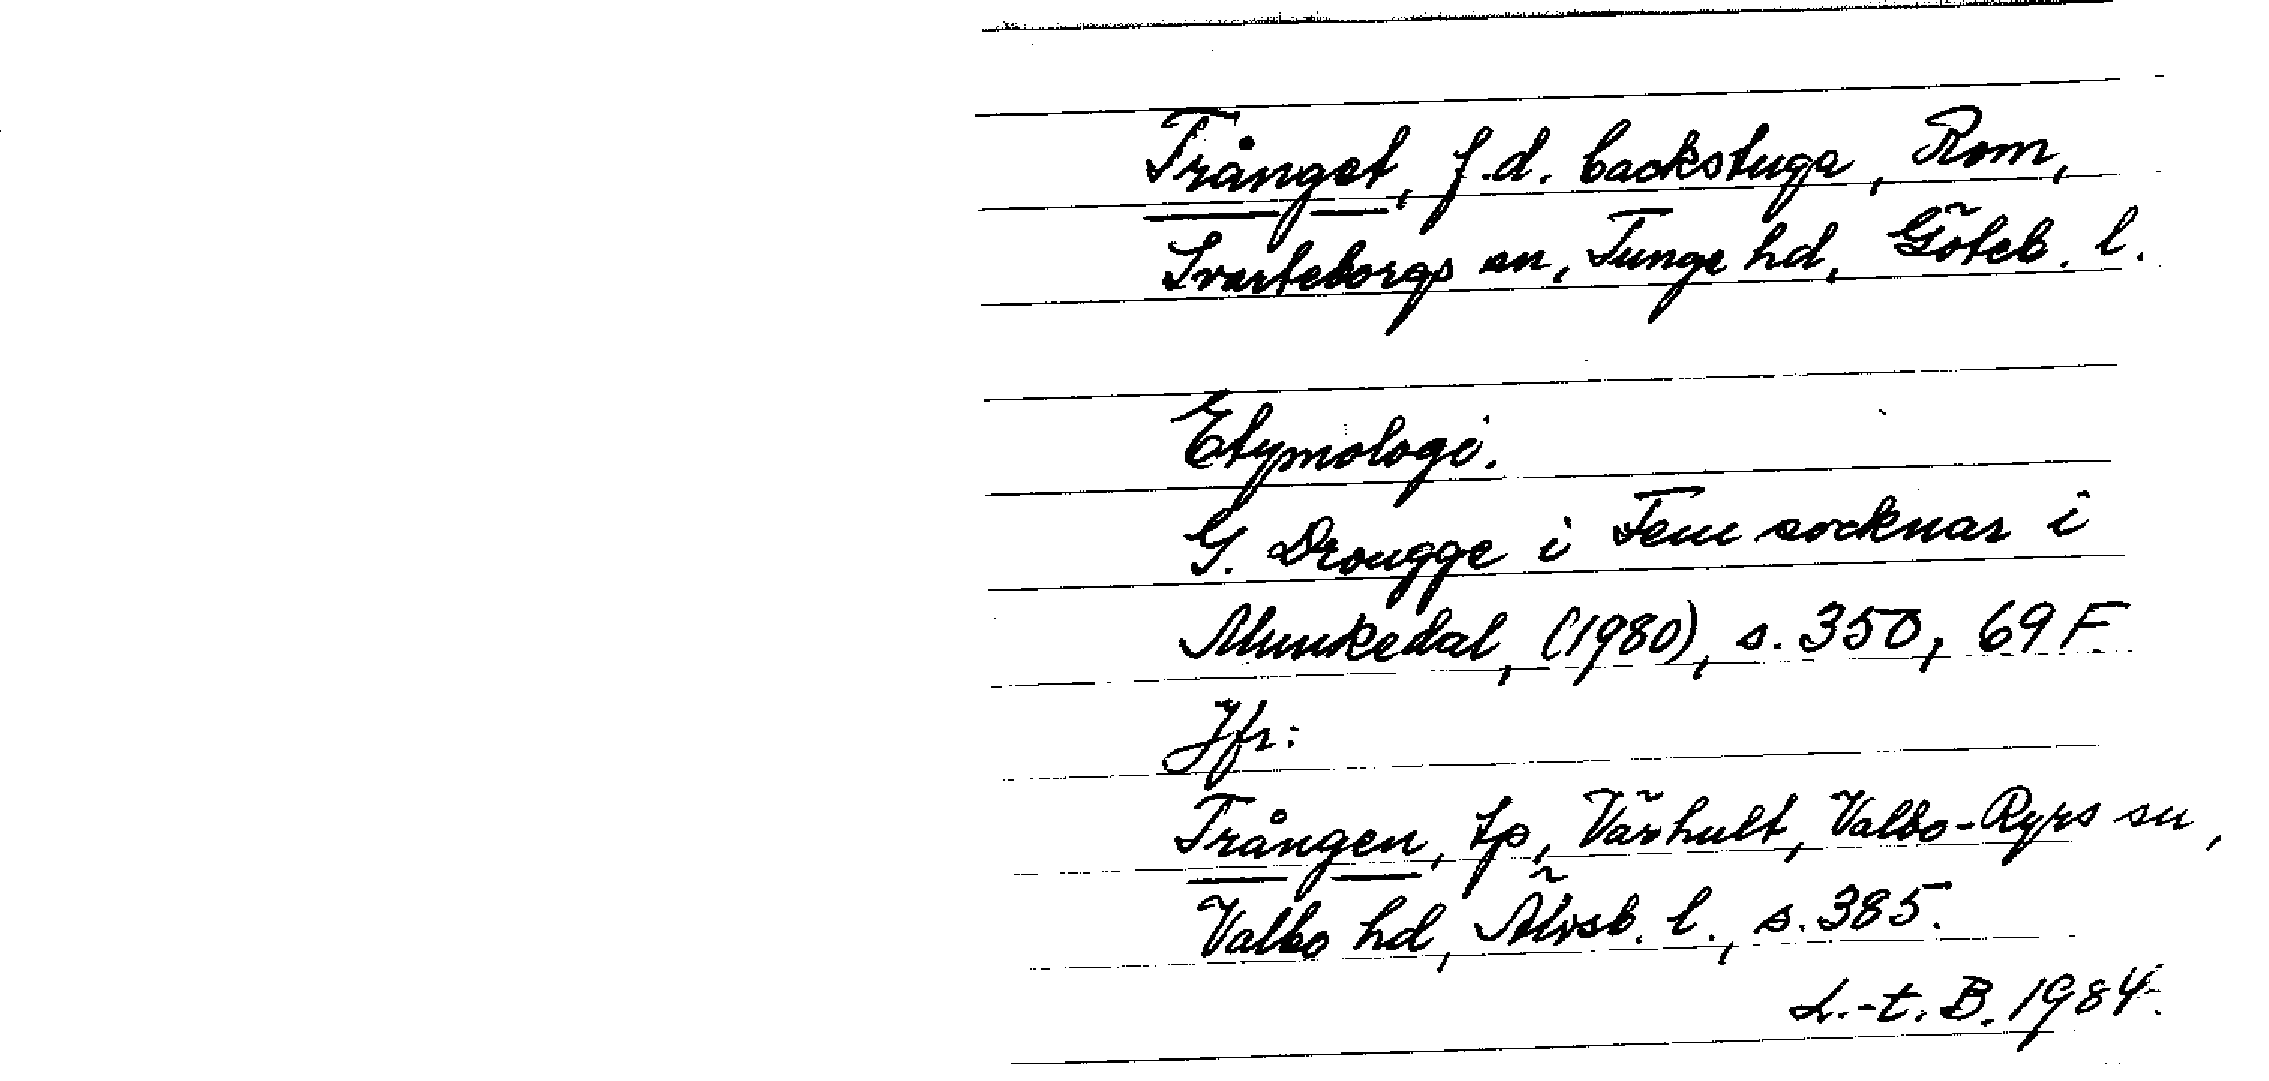 Trånget, f.d. backstuga, Rom,
Svarteborgs sn, Tunge hd, Göteb. l.
Etymologi.
G. Drougge i Fem socknar i
Munkedal, (1980), s. 350, 69 F
Jfr:
Trången, tp, Värhult, Valbo-Ryrs sn,
Valbo hd, Älvsb. l., s. 385.
L.-t. B. 1984.